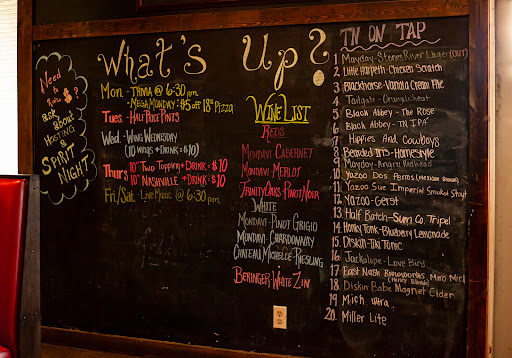 What's Up?
Need to
Raise
$?
ask
about
Hosting
a
SPIRIT
NIGHT
Mon. - TRIVIA @ 6:30 pm
- MEGA MONDAY - $5 off 18in Pizza
Tues. - HALF PRICE PINTS
Wed. - WING WEDNESDAY
(10 wings + DRINK = $10)
Thurs. 10" TWO TOPPING + DRINK = $10
10" NASHVILLE + DRINK = $10
Fri/Sat - LIVE MUSIC @ 6:30 pm
WINE LIST
REDS
MONDAVI - CABERNET
MONDAVI - MERLOT
TRINITY OAKS - PINOT NOIR
WHITE
MONDAVI - PINOT GRIGIO
MONDAVI - CHARDONNAY
CHATEAU MICHELLE - RIESLING
BERINGER - WHITE ZIN
TN ON TAP
1 Mayday - Stones River Lager (OUT)
2. Little Harpeth - Chicken Scratch
3. Blackhorse - Vanilla Cream Ale
4. Tailgate - Orange Wheat
5. Black Abbey - The Rose
6. Black Abbey - TN IPA
7. Hippies And Cowboys
8. Bearded Iris - Homestyle
9. Mayday - Angry Redhead
10. Yazoo Dos Perros
11. Yazoo Sue Imperial Smoked Stout
12. Yazoo - Gerst
13. Half Batch - Tripel
14. Honky Tonk - Blueberry Lemonade
15. Diskin - Tiki Tonic
16. Jackalope - Love Bird
17 East Nash Brewmasters Miro Miel
(Honey Blonde)
18. Diskin Babe Magnet Cider
19 Mich Ultra
20. Miller Lite